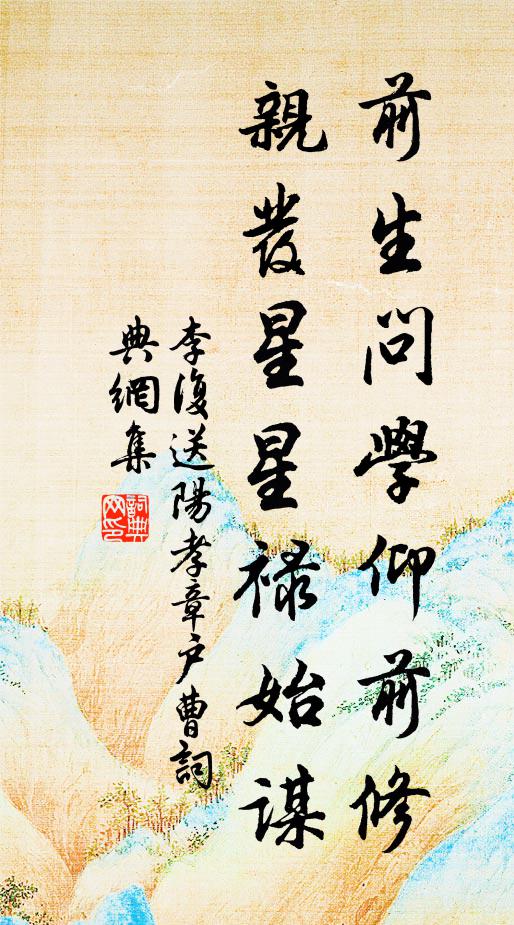 前生問學仰前修
親發星星祿始謀
李復送陽孝章戶曹詞
典網集
詞典網印